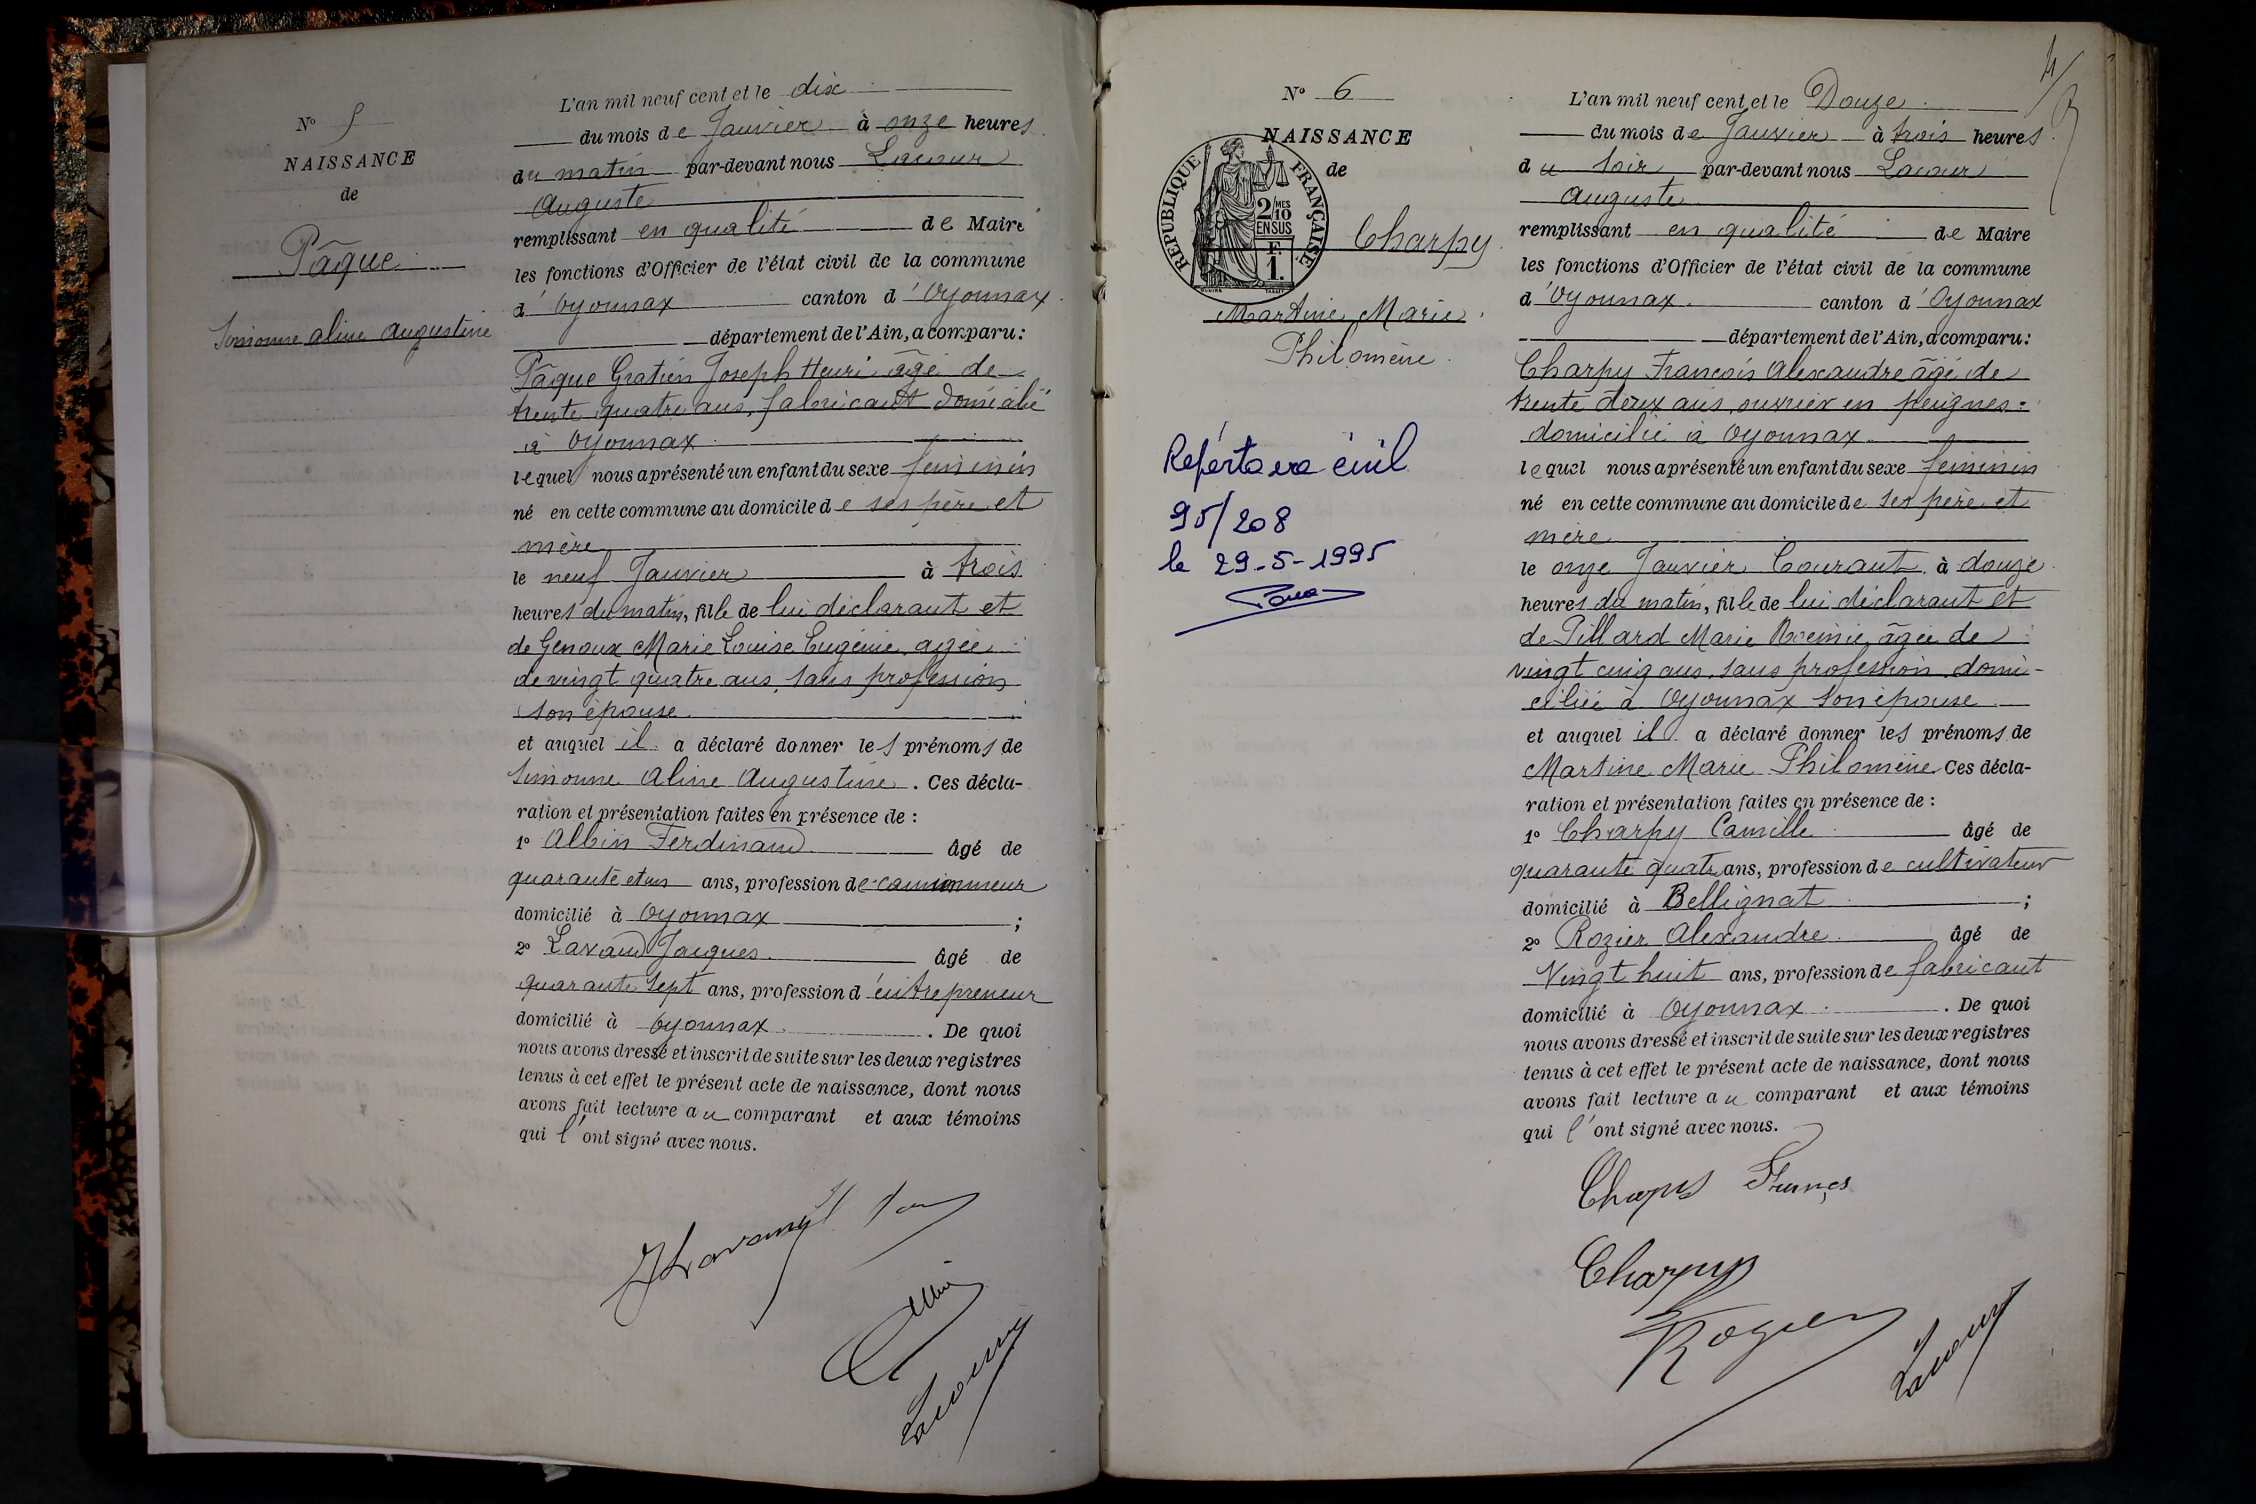 N° 5
NAISSANCE
de
Pâque
Simonne Aline Augustine
L'an mil neuf cent et le dix
du mois de Janvier à onze heures
du matin par-devant nous Lacour
Auguste
remplissant en qualité de Maire
les fonctions d'Officier de l'état civil de la commune
d'Oyonnax canton d'Oyonnax
département de l'Ain, a comparu :
Pâque Gratien Joseph Henri âgé de
trente quatre ans, fabricant domicilié
à Oyonnax
lequel nous a présenté un enfant du sexe féminin
né en cette commune au domicile de ses père et
mère
le neuf Janvier à trois
heures du matin, fille de lui déclarant et
de Genoux Marie Louise Eugénie agée
de vingt quatre ans, sans profession
son épouse
et auquel il a déclaré donner les prénoms de
Simonne Aline Augustine. Ces décla-
ration et présentation faites en présence de :
1° Albin Ferdinand âgé de
quarante et un ans, profession de camionneur
domicilié à Oyonnax ;
2° Lavaud Jacques âgé de
quarante sept ans, profession d'entrepreneur
domicilié à Oyonnax. De quoi
nous avons dressé et inscrit de suite sur les deux registres
tenus à cet effet le présent acte de naissance, dont nous
avons fait lecture au comparant et aux témoins
qui l'ont signé avec nous.
Albin
Lacour
N° 6
NAISSANCE
de
REPUBLIQUE FRANÇAISE
2/10 MES
EN SUS
F.
1.
Charpy
Martine Marie
Philomène
Répertoire civil
95/208
le 29-5-1995
4
L'an mil neuf cent et le Douze
du mois de Janvier à trois heures
du soir par-devant nous Lacour
Auguste
remplissant en qualité de Maire
les fonctions d'Officier de l'état civil de la commune
d'Oyonnax canton d'Oyonnax
département de l'Ain, a comparu :
Charpy François Alexandre âgé de
trente deux ans, ouvrier en peignes
domicilié à Oyonnax
lequel nous a présenté un enfant du sexe féminin
né en cette commune au domicile de ses père et
mère
le onze Janvier Courant à douze
heures du matin, fille de lui déclarant et
de Pillard Marie Noémie âgée de
vingt cinq ans, sans profession domi-
ciliée à Oyonnax son épouse
et auquel il a déclaré donner les prénoms de
Martine Marie Philomène Ces décla-
ration et présentation faites en présence de :
1° Charpy Camille âgé de
quarante quatre ans, profession de cultivateur
domicilié à Bellignat ;
2° Rozier Alexandre âgé de
Vingt huit ans, profession de fabricant
domicilié à Oyonnax. De quoi
nous avons dressé et inscrit de suite sur les deux registres
tenus à cet effet le présent acte de naissance, dont nous
avons fait lecture au comparant et aux témoins
qui l'ont signé avec nous.
Charpy
Rozier
Lacour